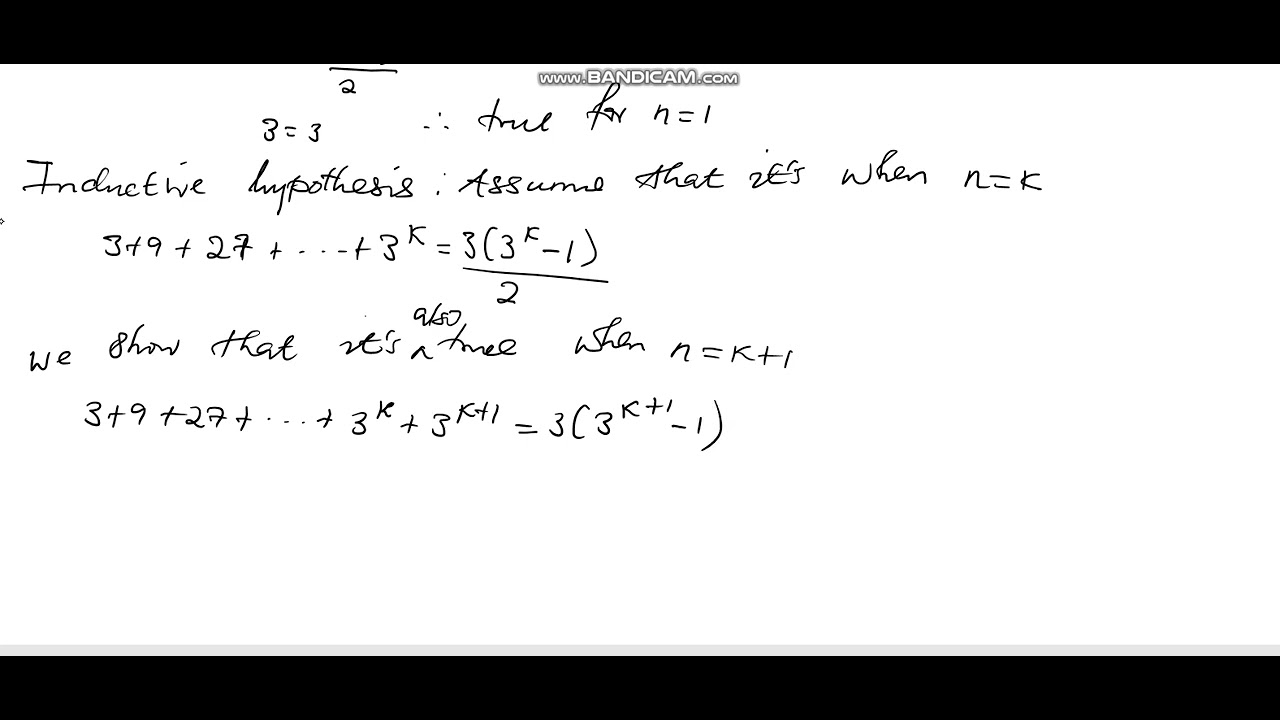 www.BANDICAM.com
2
3 = 3 ∴ true for n = 1
Inductive hypothesis : Assume that it's when n = k
3 + 9 + 27 + ... + 3^k = 3(3^k - 1)
2
also
we show that it's ^ true when n = k+1
3 + 9 + 27 + ... + 3^k + 3^(k+1) = 3(3^(k+1) - 1)